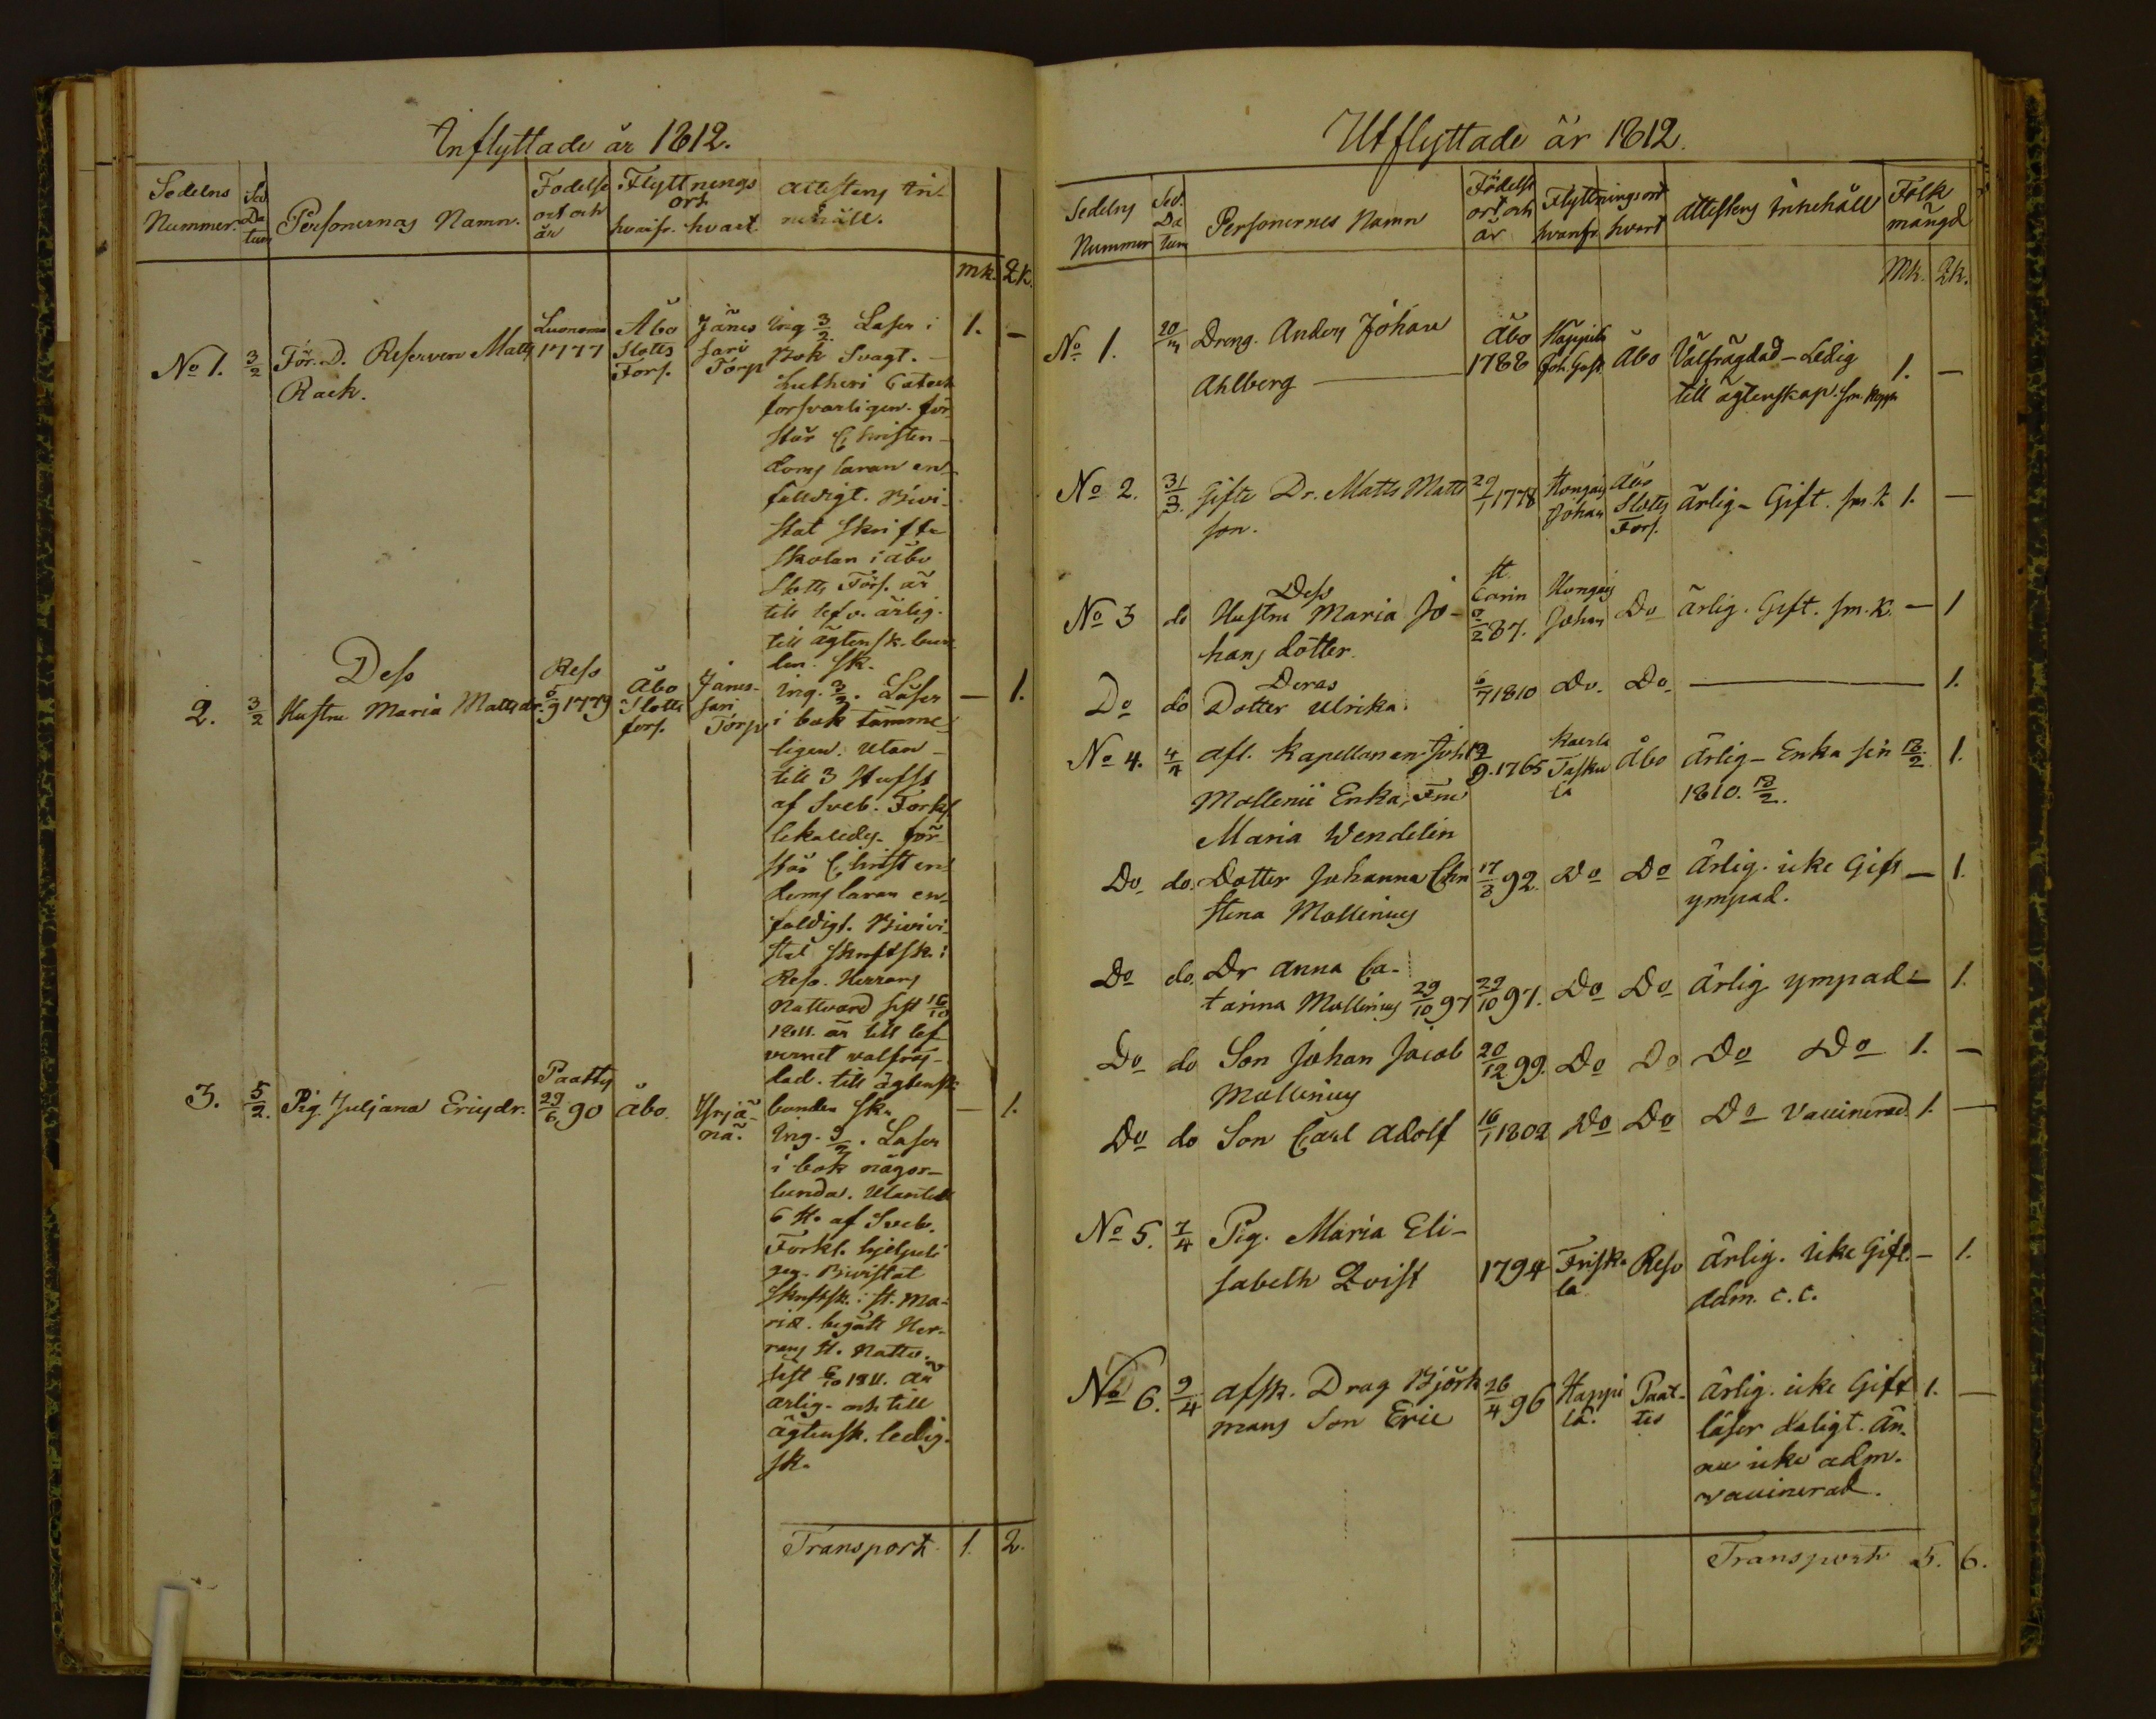 Inflyttade år 1812.
Sedelns Nummer. Sed. Datum Personernas Namn. Födelse ort och år Flyttnings ort hvarifr. hvart. Attestens Innehåll.
mk. Qk.
No 1. 3/2 För. D. Reserven Matts Rack. 1777 Åbo Slotts Förs. Jänessari Torp 1. –
Ing 3/2. Läser i
Bok svagt. –
Lutheri Catech
försvarligen. för
står Christen-
doms läran en-
faldigt. Bivi-
stat Skrifte
skolan i Åbo
Slotts Förs. är
till lefv. ärlig.
till ägtensk. bun
den. Sk.
2. 3/2 Dess Hustru Maria Mattsdr. Reso 6/9 1779 Åbo Slotts förs. Jänes-sari Torp – 1.
Ing. 3/2. Läser
i bok tämme-
ligen. Utan-
till 3 Hufst
af Sveb. Förkl.
för
står Christen-
doms läran en-
faldigt. Bivi-
stat Skriftsk. i
Reso. Herrans
Nattvard sist 16/10
1811. är till lef-
vernet välfräj-
dad. till ägtensk:
bunden Sk.
3. 5/2. Pig. Juljana Ericsdr. Paattis 29/6 90 Åbo. Yrjä-nä. – 1.
Ing. 9/2. Läser
i bok någor-
lunda. Utantill
6 H. af Sveb.
Förkl. hjelpeli
gen. Bivistat
Skriftsk. i St. Ma-
riæ. begått Her-
rans H. Nattv.
sist 6/10 1811. är
ärlig. och till
ägtensk. ledig.
Sk.
Transport 1. 2.
Utflyttade år 1812.
Sedelns Nummer Sed. Datum Personernes Namn Födelse ort och år Flyttningsort hvarifr. hvart Attestens Innehåll Folk mängd
Mk. Qk.
No 1. Dreng. Anders Johan Ahlberg Åbo 1788 Åbo Välfrägdad – Ledig 1. –
till ägtenskap.
No 2. 31/3. Gifte Dr. Matts Matts son. 29/1 1778 Hongais Johan Åbo Slotts Förs. ärlig – Gift. sm. k 1. –
No 3 do Dess Hustru Maria Jo-hans dotter. St. Carin 87. Hongais Johan Do ärlig. Gift. sm. K. – 1
Do do Deras Dotter Ulrika. 6/7 1810 Do. Do – 1.
No 4. 4/4 Afl. Kapellanen Joh. 12/9. 1765 Kaerla Taskula Åbo Ärlig – Enka sen 18/2 1.
Mollenii Enka, Fru 1810. 18/2.
Maria Wendelin
Do do. Dotter Johanna Chri 17/8 92. Do Do Ärlig. icke Gift – 1.
stina Mollenius ympad.
Do do. Dr Anna Ca-
tarina Mollenius 29/10 97 29/10 97. Do Do Ärlig ympad – 1.
Do do Son Johan Jacob 20/12 99. Do Do Do Do 1. –
Mollenius
Do do Son Carl Adolf 16/1 1802 Do Do Do Vaccinerad. 1. –
No 5. 7/4 Pig. Maria Eli-
sabeth Qvist 1794 Friskala Reso Ärlig. icke Gift. – 1.
adm. c.c.
No 6. 9/4 Afsk. Drag Björk 26/4 96 Happila. Paat-tis Ärlig. icke Gift 1. –
mans Son Eric läser daligt. Än-
nu icke adm.
vaccinerad.
Transport 5. 6.